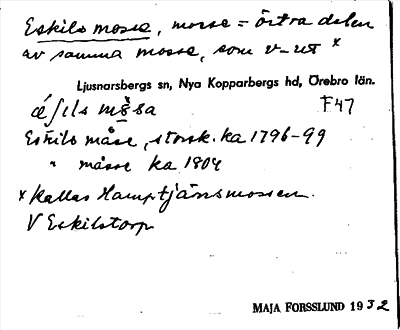 Eskils mosse, mosse = östra delen
av samma mosse, som v-ut x
Ljusnarsbergs sn, Nya Kopparbergs hd, Örebro län.
F47
Eskils måse, storsk. ka 1796-99
" måsse ka 1804
x Kallas Hamptjärnsmossen.
V Eskilstorp
MAJA FORSSLUND 1932